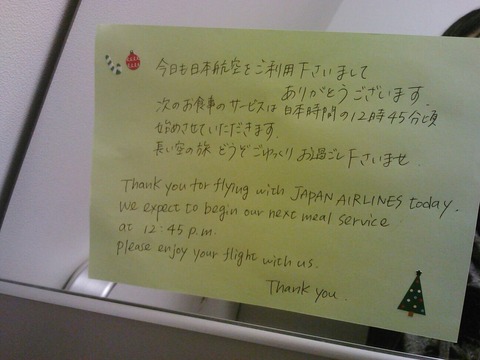 今日も日本航空をご利用下さいまして
ありがとうございます.
次のお食事のサービスは日本時間の12時45分頃
始めさせていただきます.
長い空の旅 どうぞごゆっくりお過ごし下さいませ
Thank you for flying with JAPAN AIRLINES today.
We expect to begin our next meal service
at 12:45 p.m.
please enjoy your flight with us.
Thank you.